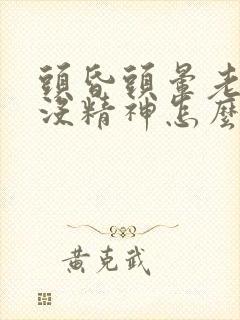 頭昏頭暈老
沒精神怎麼
黃克武